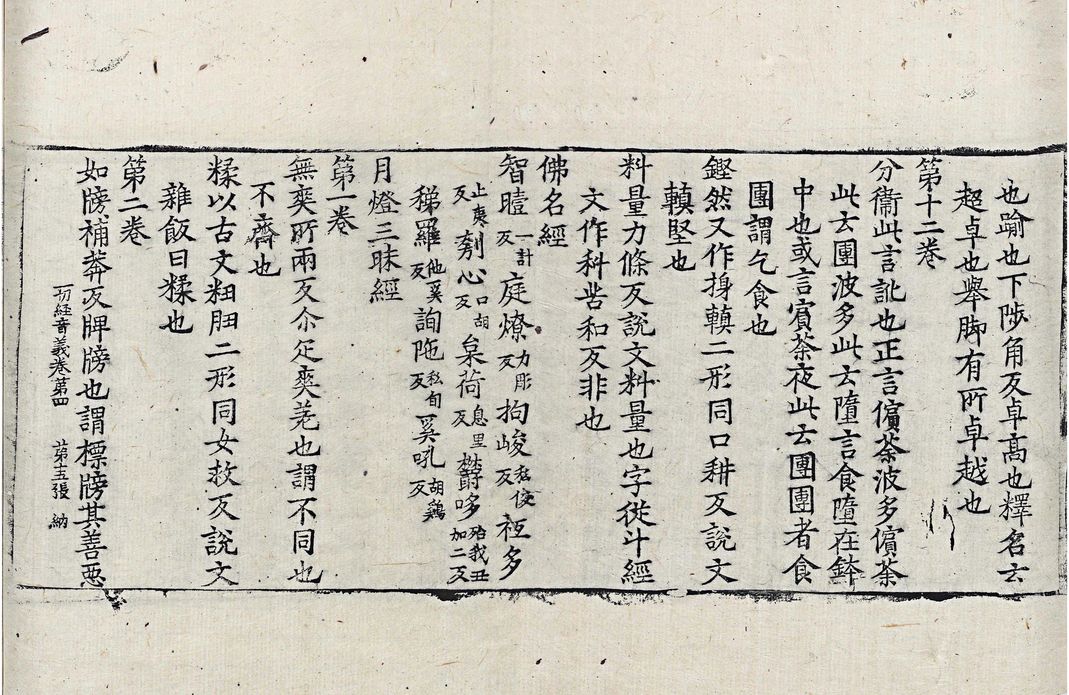 也踰也下陟角反卓高也釋名云
超卓也舉脚有所卓越也
第十二卷
分衞此言訛也正言儐荼波多儐荼
此云團波多此云墮言食墮在鉢
中也或言賓荼夜此云團團者食
團謂乞食也
鏗然又作摼䡰二形同口耕反説文
䡰堅也
料量力條反説文料量也字從斗經
文作科苦和反非也
佛名經
智曀一計反庭燎力彫反拘峻私俊反祍多
止庾反刳心口胡反枲荷息里反欝哆殆我丑加二反
稊羅他奚反詢陁私旬反奚吼胡鷄反
月燈三昧經
第一卷
無奭所兩反尒疋奭差也謂不同也
不齊也
糅以古文粈䏔二形同女救反説文
雜飯曰糅也
第二卷
如牓補莽反牌牓也謂標牓其善惡
一切経音義卷第四 第十五張 納